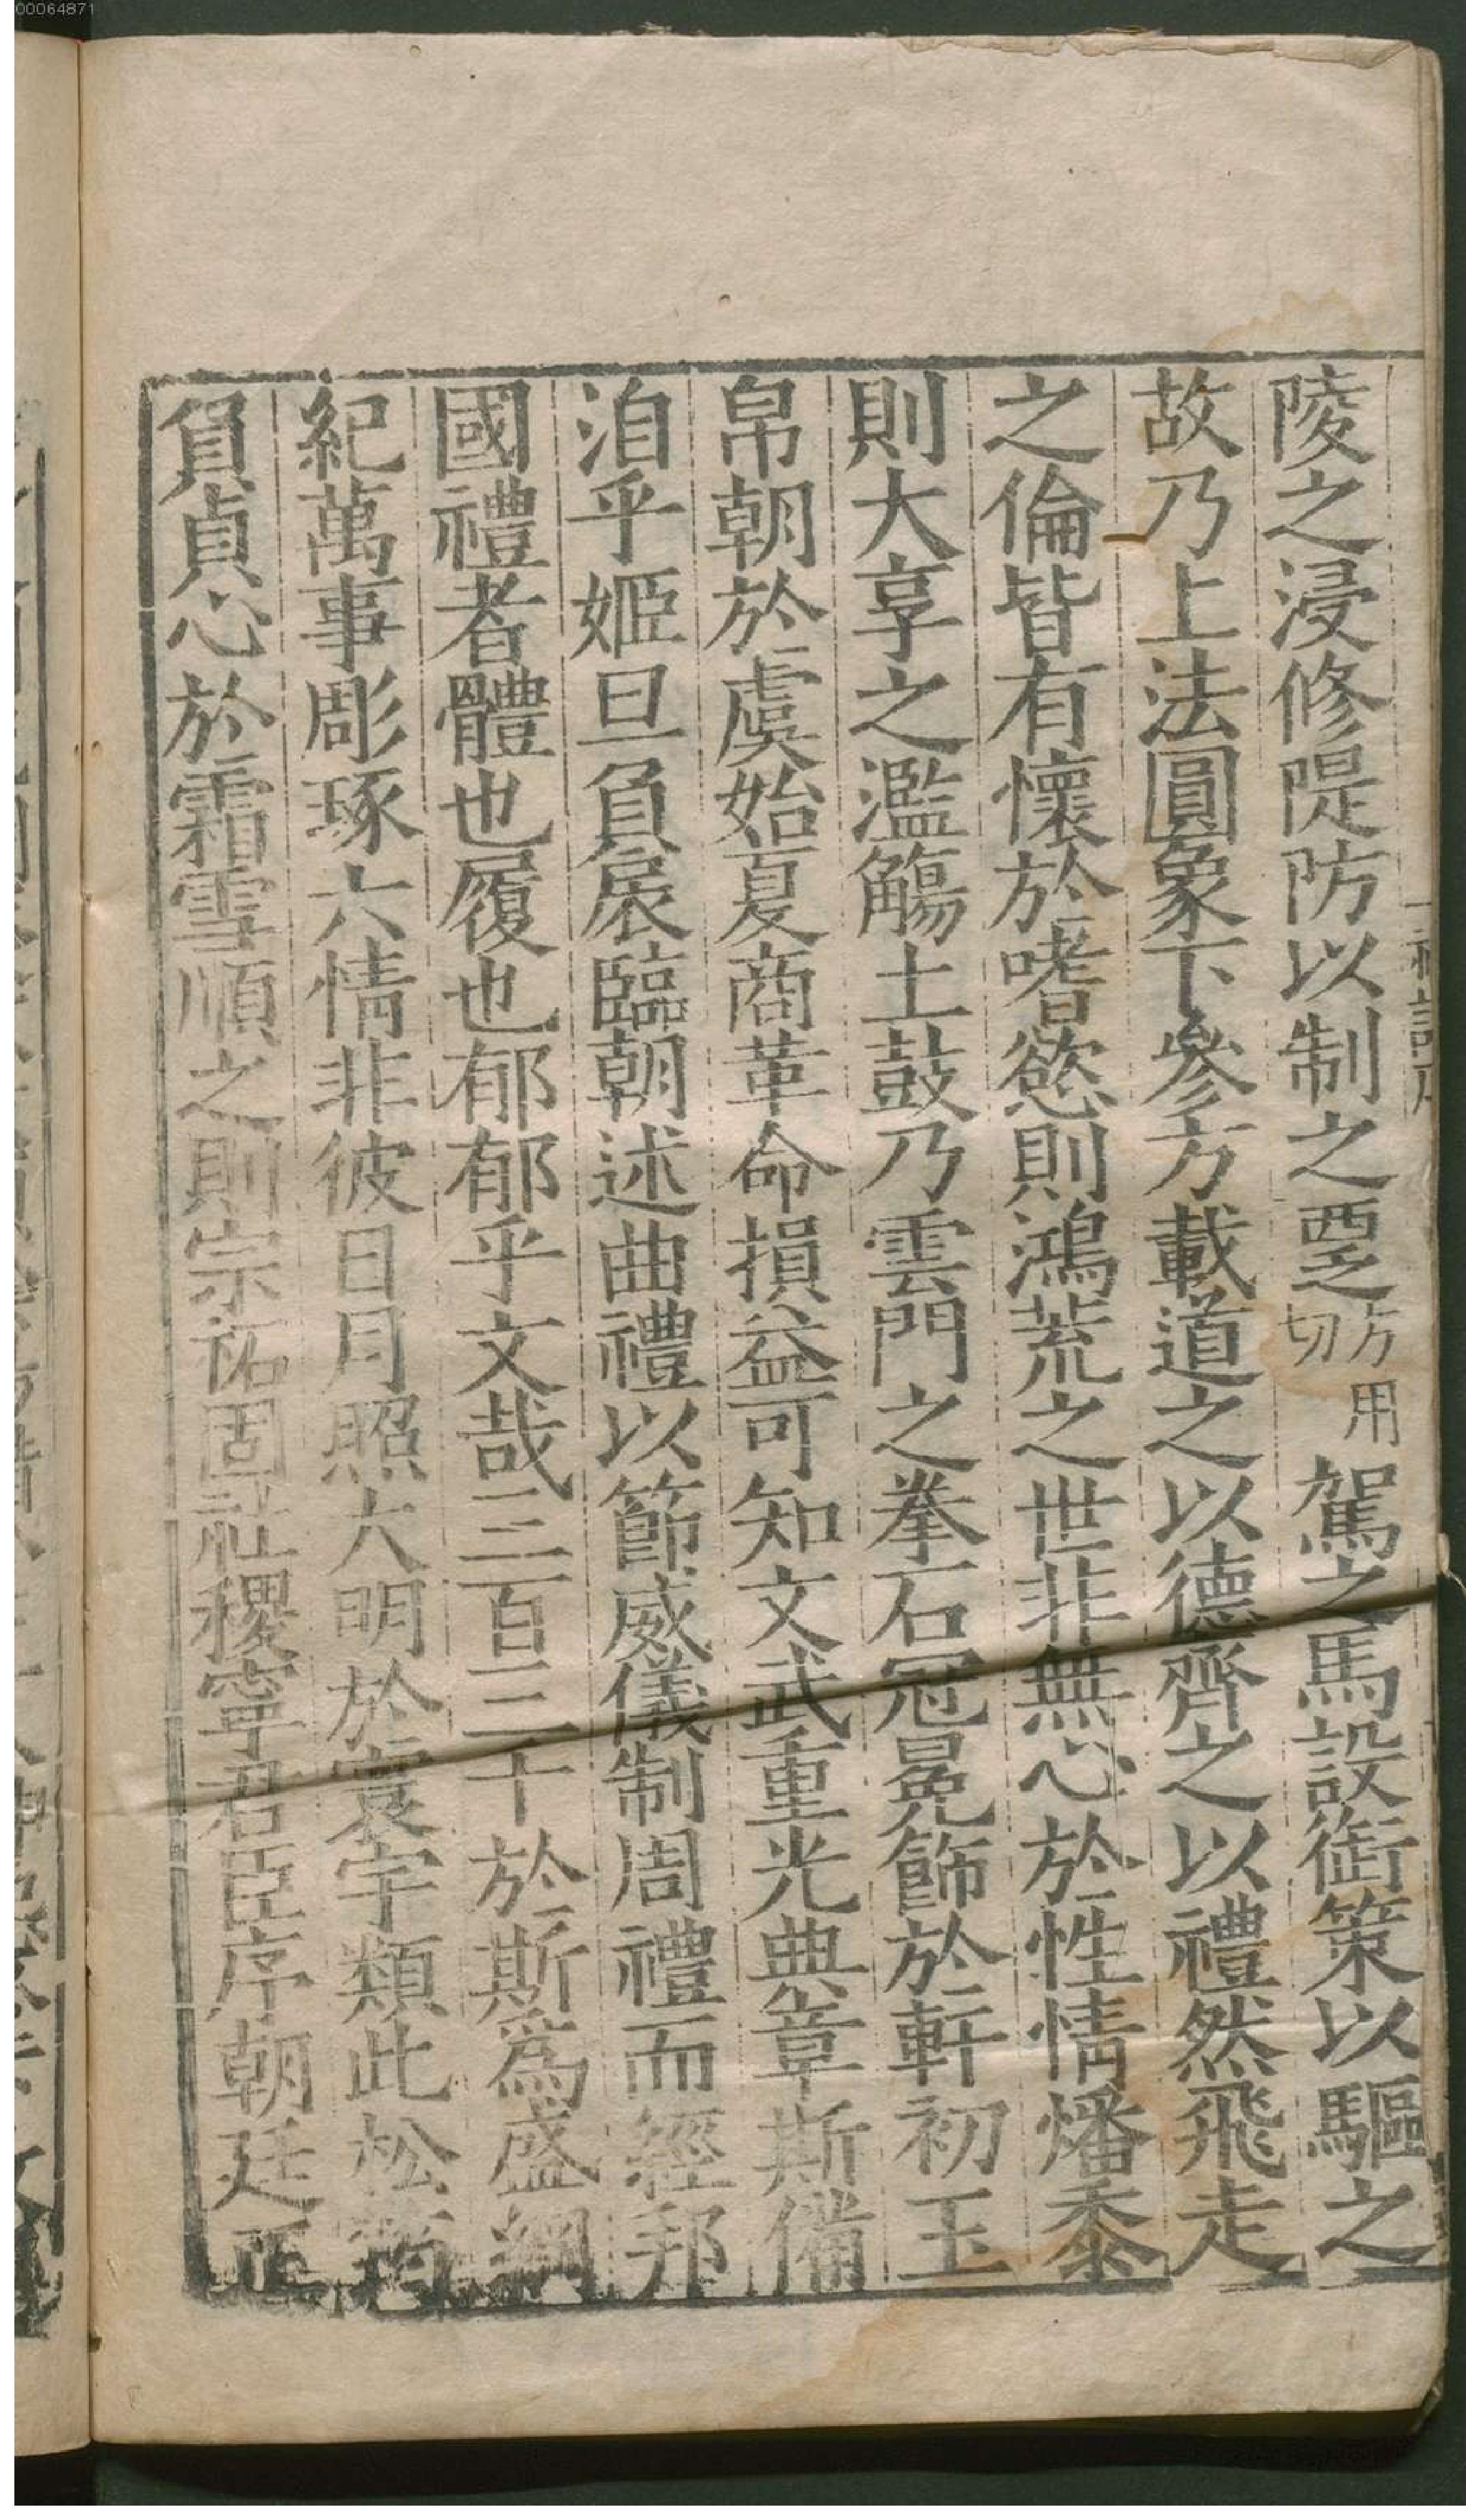 00064871
陵之浸修隄防以制之覂方用切駕之馬設銜策以驅之
故乃上法圓象下參方載道之以德齊之以禮然飛走
之倫皆有懷於嗜慾則鴻荒之世非無心於性情燔黍
則大享之濫觴土鼓乃雲門之拳石冠冕飾於軒初玉
帛朝於虞始夏商革命損益可知文武重光典章斯備
洎乎姬旦負扆臨朝述曲禮以節威儀制周禮而經邦
國禮者體也履也郁郁乎文哉三百三千於斯爲盛綱
紀萬事彫琢六情非彼日月照大明於寰宇類此松筠
負貞心於霜雪順之則宗祏固社稷寧君臣序朝廷正